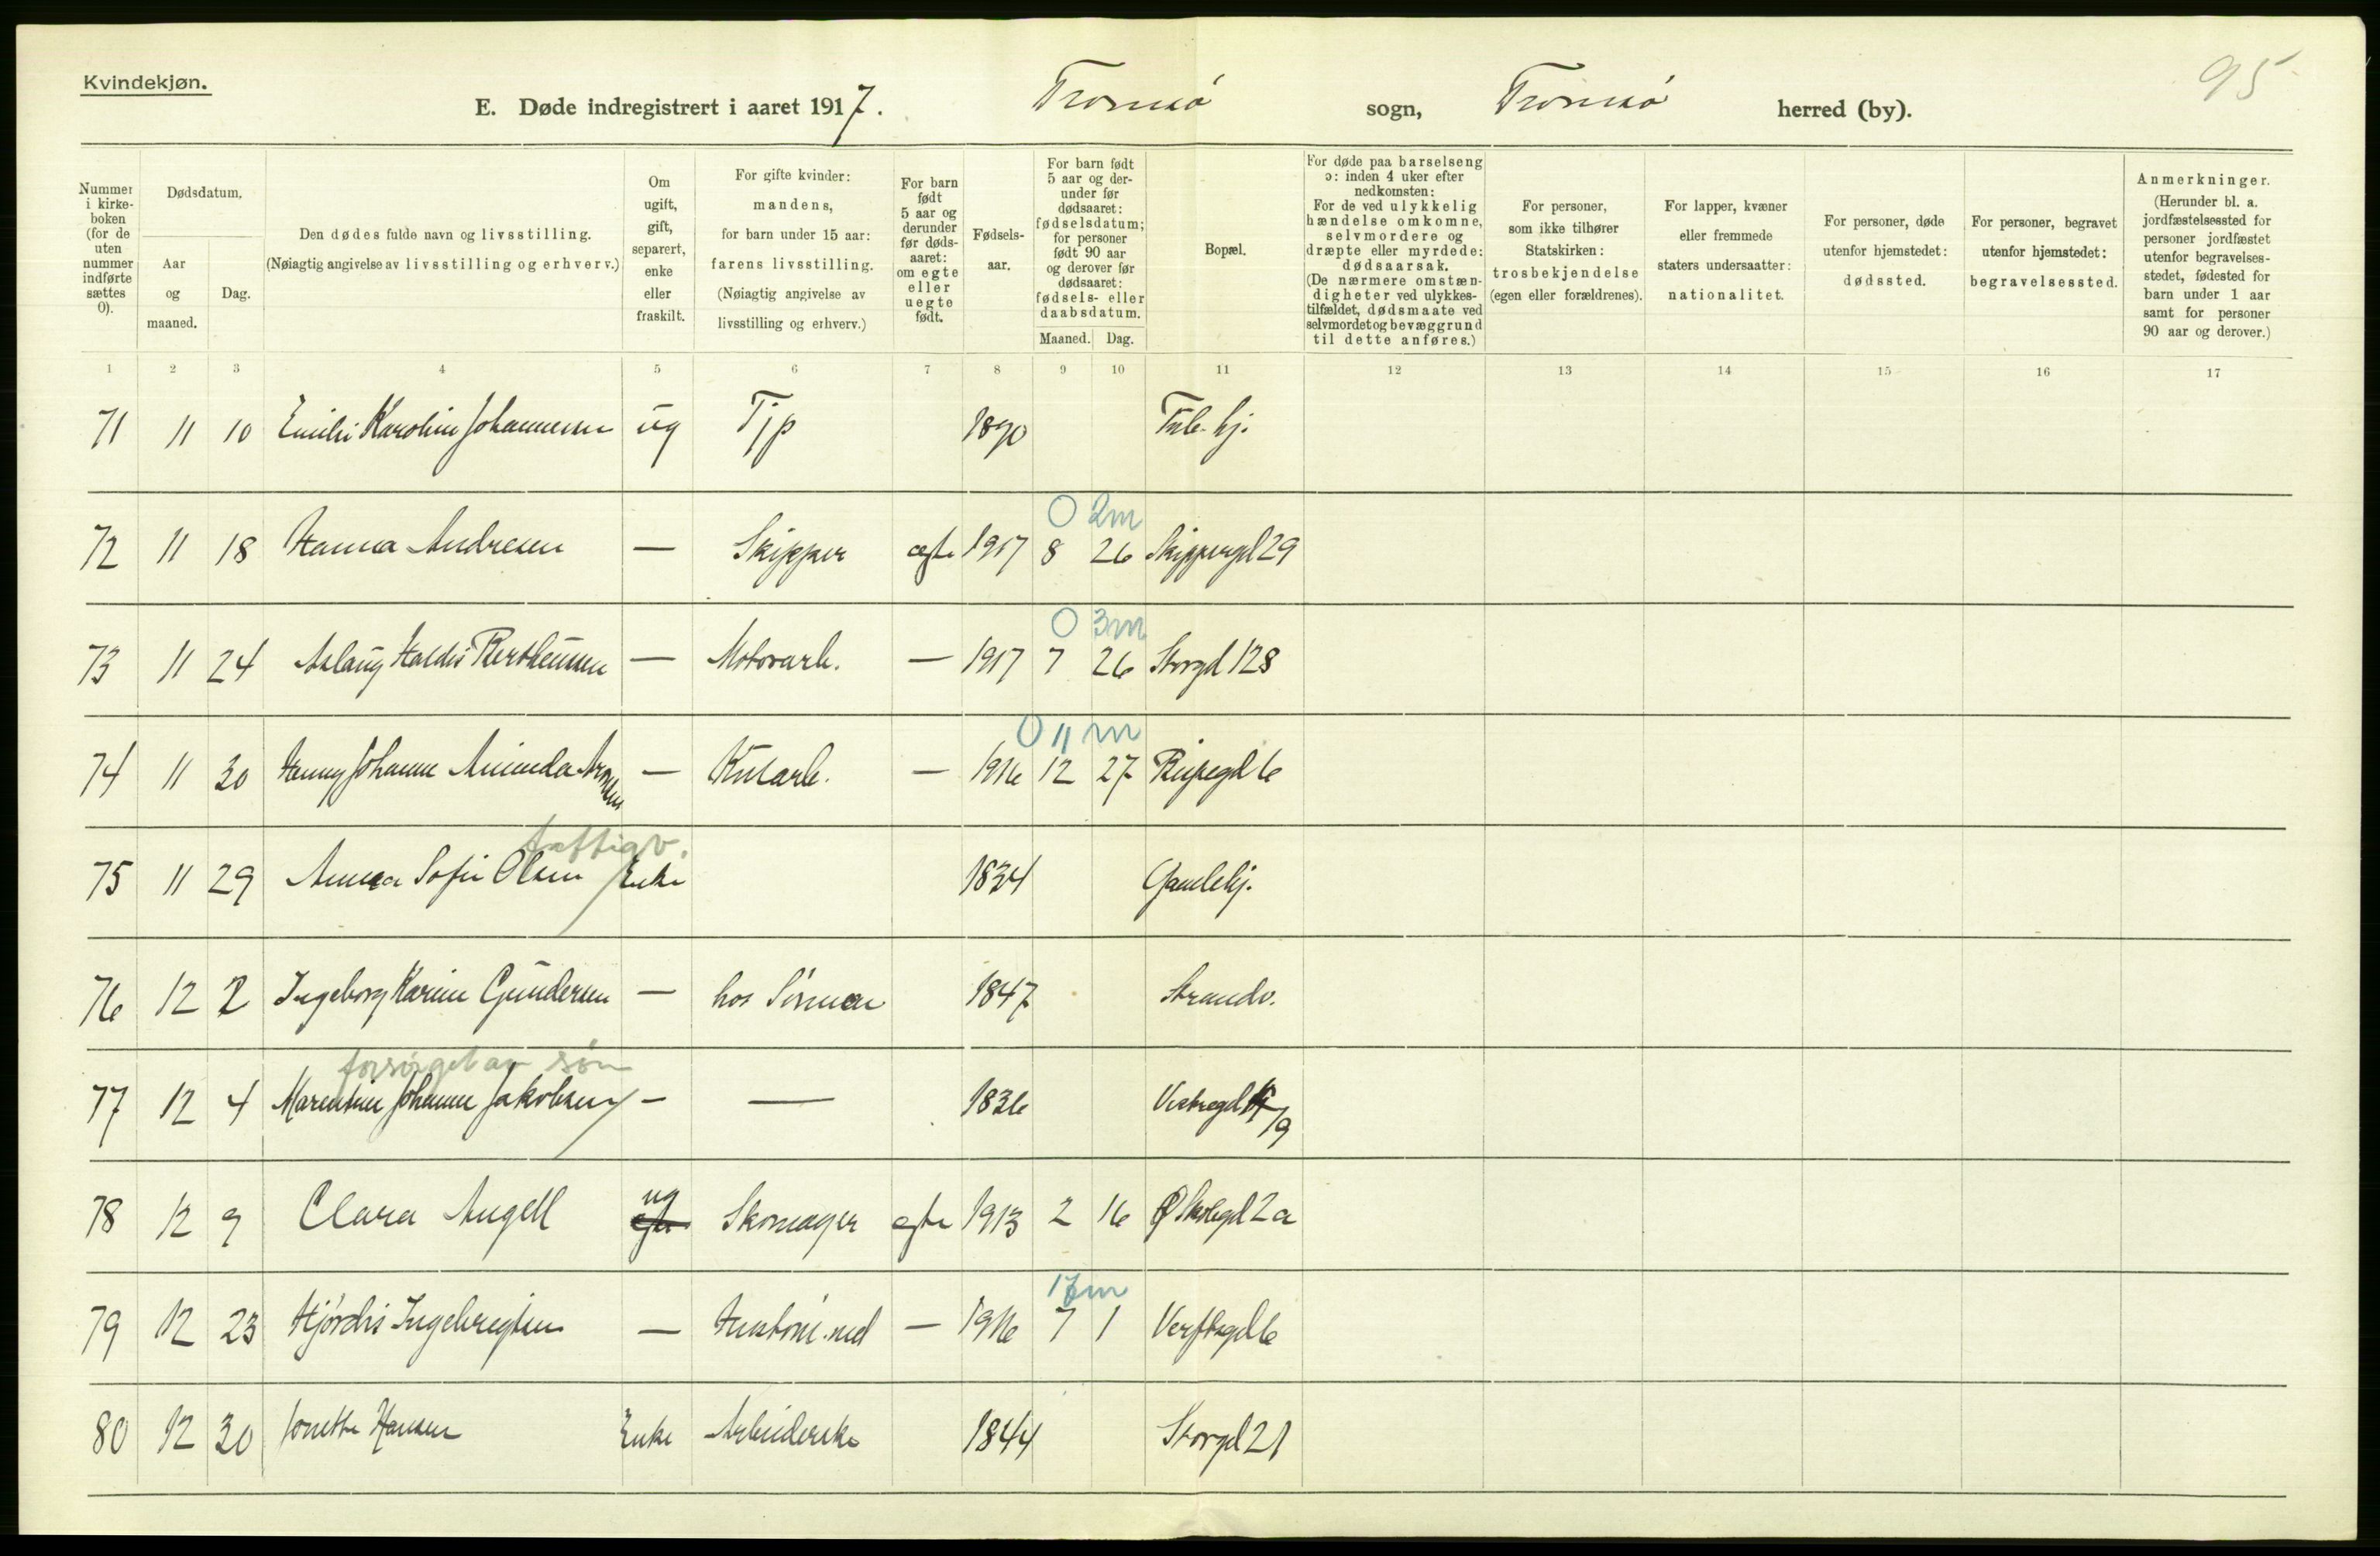 Kvindekjøn.
95
E. Døde indregistrert i aaret 1917. Tromsø sogn, Tromsø herred (by).
Nummer i kirkeboken (for de uten nummer indførte sættes 0).
Dødsdatum.
Aar og maaned.
Dag.
Den dødes fulde navn og livsstilling.
(Nøiagtig angivelse av livsstilling og erhverv.)
Om ugift, gift, separert, enke eller fraskilt.
For gifte kvinder: mandens, for barn under 15 aar: farens livsstilling. (Nøiagtig angivelse av livsstilling og erhverv.)
For barn født 5 aar og derunder før dødsaaret: om egte eller uegte født.
Fødselsaar.
For barn født 5 aar og derunder før dødsaaret: fødselsdatum; for personer født 90 aar og derover før dødsaaret: fødsels- eller daabsdatum.
Maaned. Dag.
Bopæl.
For døde paa barselseng ɔ: inden 4 uker efter nedkomsten: For de ved ulykkelig hændelse omkomne, selvmordere og dræpte eller myrdede: dødsaarsak. (De nærmere omstændigheter ved ulykkestilfældet, dødsmaate ved selvmordet og bevæggrund til dette anføres.)
For personer, som ikke tilhører Statskirken: trosbekjendelse (egen eller forældrenes).
For lapper, kvæner eller fremmede staters undersaatter: nationalitet.
For personer, døde utenfor hjemstedet: dødssted.
For personer, begravet utenfor hjemstedet: begravelsessted.
Anmerkninger. (Herunder bl. a. jordfæstelsessted for personer jordfæstet utenfor begravelsesstedet, fødested for barn under 1 aar samt for personer 90 aar og derover.)
1 2 3 4 5 6 7 8 9 10 11 12 13 14 15 16 17
71 11 10 Emilie Karoline Johannessen ug Tjp 1890 Tub. hj.
0 2m
72 11 18 Hanna Andresen — Skipper egte 1917 8 26 Skippergd 29
0 3m
73 11 24 Aslaug Haldis Bertheussen — Motorarb. — 1917 7 26 Storgd 128
0 11 m
74 11 30 Henny Johanne Aminda — — 1916 12 27 6
fattigv.
75 11 29 Anna Sofie Olsen Enke 1834 Gamlehj.
76 12 2 Ingeborg Karine Gundersen — hos Sønnen 1847 Strandv.
forsørget av søn
77 12 4 Marentine Johanne Jakobsen — — 1836 Vestregd 19
ug
78 12 9 Clara Angell egte Skomager egte 1913 2 16 Ø Skolegd 2a
17m
79 12 23 Hjørdis Ingebrigtsen — — 1916 7 1 Verftsgd 6
80 12 30 Jonette Hansen Enke Arbeiderske 1844 Storgd 21